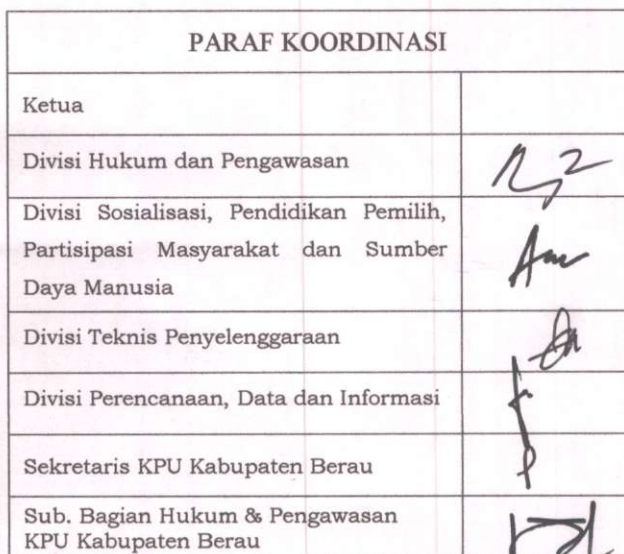 PARAF KOORDINASI
Ketua
Divisi Hukum dan Pengawasan
Divisi Sosialisasi, Pendidikan Pemilih,
Partisipasi Masyarakat dan Sumber
Daya Manusia
Divisi Teknis Penyelenggaraan
Divisi Perencanaan, Data dan Informasi
Sekretaris KPU Kabupaten Berau
Sub. Bagian Hukum & Pengawasan
KPU Kabupaten Berau